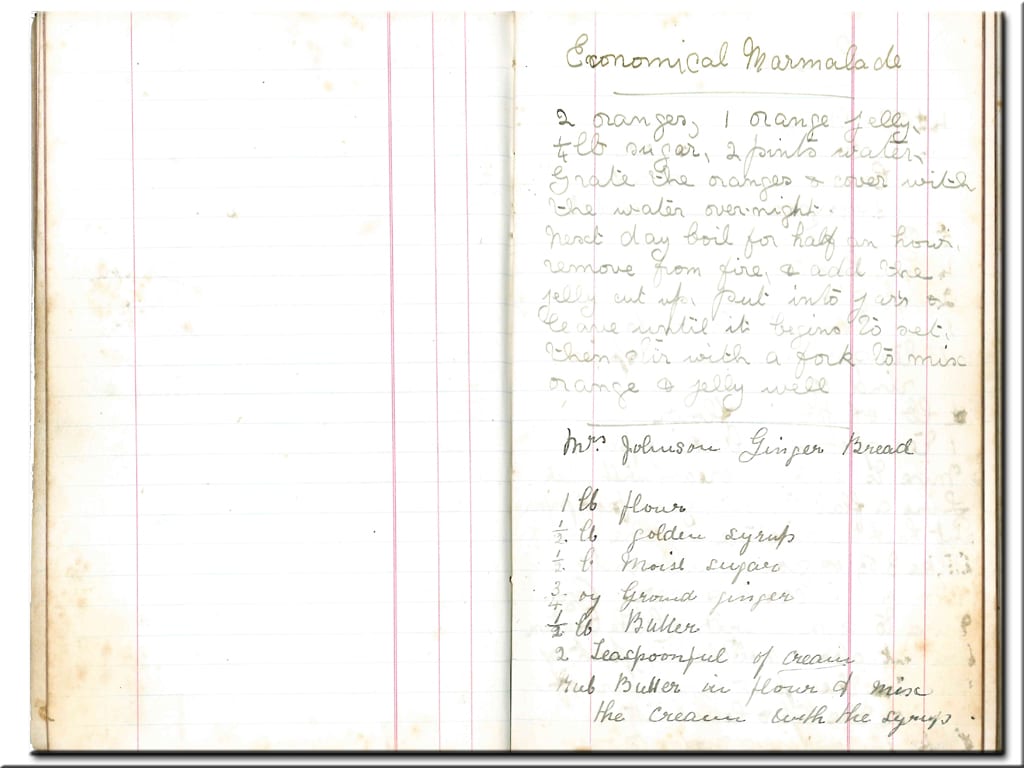 Economical Marmalade
2 oranges, 1 orange jelly,
¼ lb sugar, 2 pints water,
Grate the oranges & cover with
the water over-night.
Next day boil for half an hour,
remove from fire, & add the
jelly cut up. Put into jars &
leave until it begins to set,
then stir with a fork to mix
orange & jelly well
Mrs. Johnson Ginger Bread
1 lb flour
½ lb golden syrup
½ lb Moist sugar
¾ oz Ground ginger
½ lb Butter
2 Teaspoonful of cream
Rub Butter in flour & mix
the cream with the syrup.